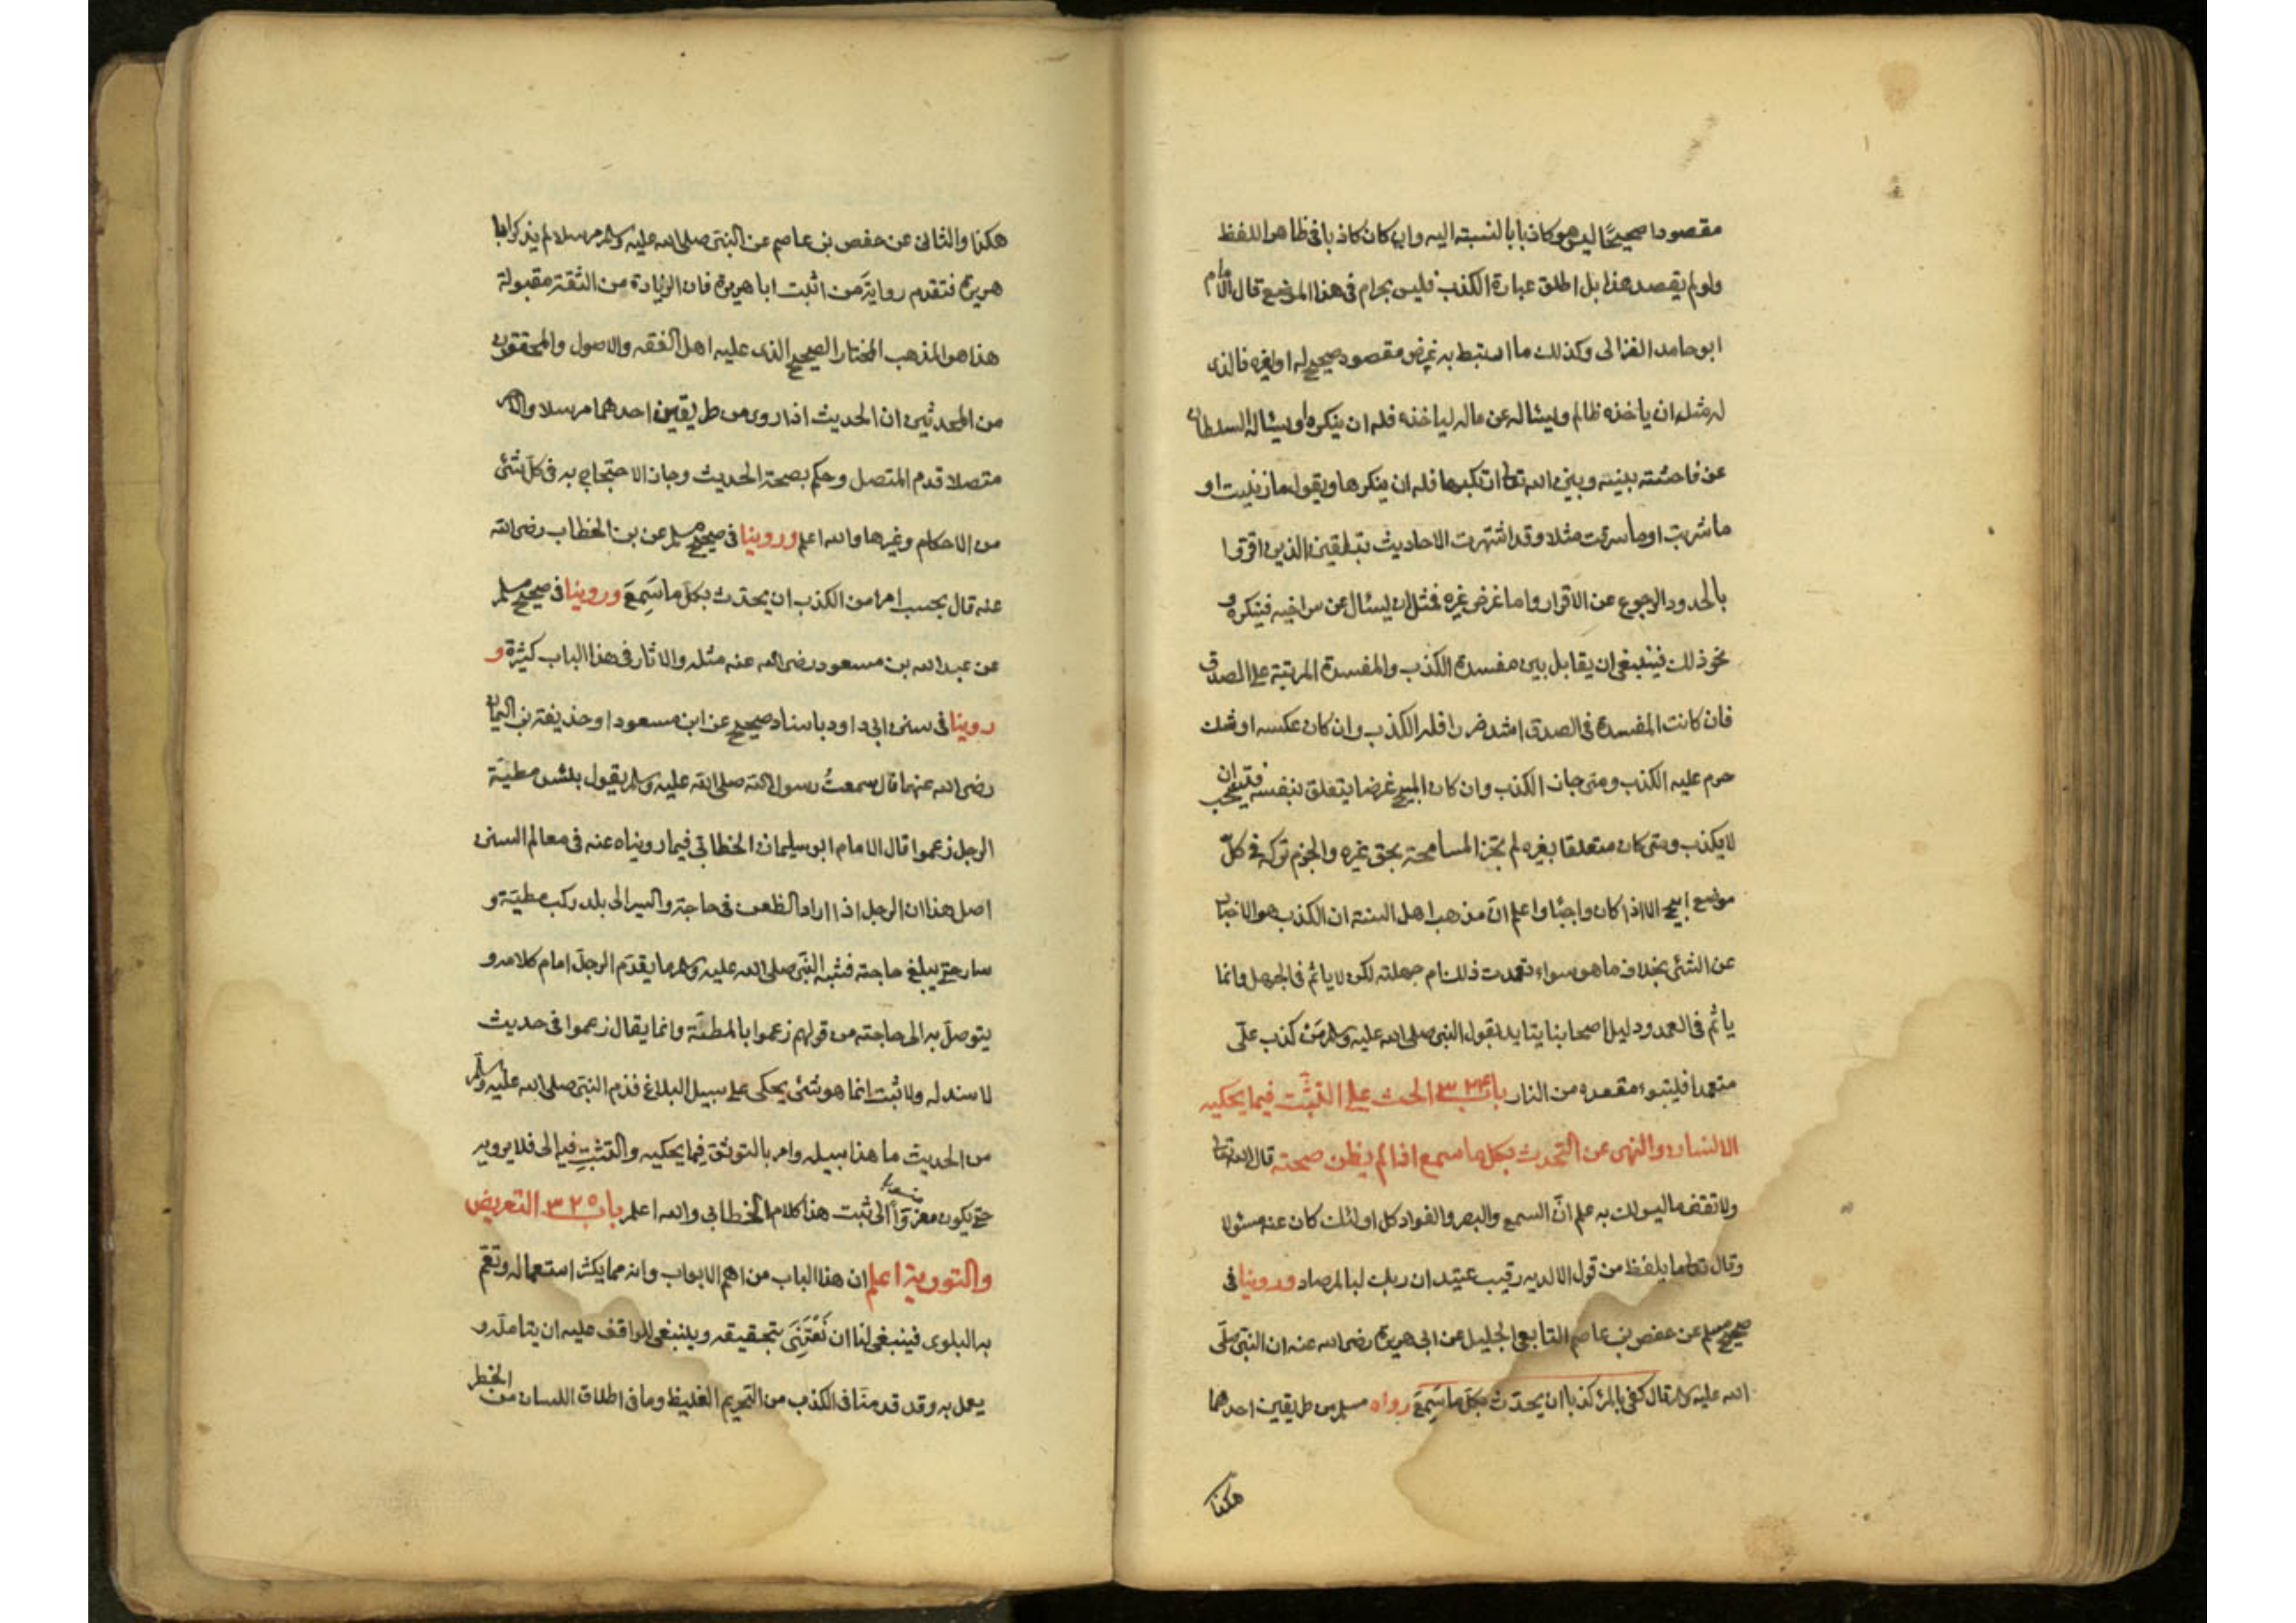 مقصودا صحيحًا ليس هو كاذبا بالنسبة اليه وان كان كاذبا في ظاهر اللفظ
ولو لم يقصد هذا بل اطلق عبارة الكذب فليس بحرام في هذا الموضع قال الامام
ابو حامد الغزالى وكذلك ما استبط به غرض مقصود صحيح له او لغيره فالذى
له مثل ان ياخذه ظالم ويسئاله عن ماله لياخذه فله ان ينكره او يسئاله السلطان
عن فاحشته بينه وبين الله تعالى ارتكبها فله ان ينكرها ويقول ما زنيت او
ما شربت او ما سرقت مثلا وقد اشتهرت الاحاديث بتلقين الذين اقروا
بالحدود الرجوع عن الاقرار واما غرض غيره فمثل ان يسئال عن سر اخيه فينكره و
نحو ذلك فينبغى ان يقابل بين مفسدة الكذب والمفسدة المرتبة على الصدق
فان كانت المفسدة في الصدق اشد ضررا فله الكذب وان كان عكسه او شك
حرم عليه الكذب ومتى جاز الكذب وان كان المبيح غرضا يتعلق بنفسه فيستحب ان
لا يكذب ومتى كان متعلقا بغيره لم تجز المسامحة بحق غيره والحزم تركه في كلّ
موضع ابيح الا اذا كان واجبًا واعلم انّ مذهب اهل السنة ان الكذب هو الاخبار
عن الشئ بخلاف ما هو سواء تعمدت ذلك ام جهلته لكن لا ياثم في الجهل وانما
ياثم في العمد ودليل اصحابنا يتايد بقول النبى صلى الله عليه وسلم مَنْ كذب علَى
متعمدا فليتبوء مقعده من النار باب ٣٢٤ الحث على التثبّت فيما يحكيه
الانسان والنهى عن التحدث بكل ما سمع اذا لم يظن صحته قال الله تعالى
ولا تقف ما ليس لك به علم انّ السمع والبصر والفواد كل اولئك كان عنه مسئولا
وقال تعالى ما يلفظ من قول الا لديه رقيب عتيد ان ربك لبالمرصاد وروينا في
صحيح مسلم عن حفص بن عاصم التابعى الجليل عن ابى هريرة رضى الله عنه ان النبىّ صلّى
الله عليه وسلم قال كفى بالمرء كذبا ان يحدّث بكلّ ما سَمِعَ رواه مسلم من طريقين احدهما
هكذا
هكذا والثانى عن حفص بن عاصم عن النبىّ صلى الله عليه وسلم مرسلا لم يذكر ابا
هريرة فتقدم رواية مَن اثبت ابا هريرة فان الزيادة من الثقة مقبولة
هذا هو المذهب المختار الصحيح الذى عليه اهل الفقه والاصول والمحققون
من المحدثين ان الحديث اذا روى من طريقين احدهما مرسلا والآخر
متصلا قدم المتصل وحكم بصحة الحديث وجاز الاحتجاج به في كلّ شئ
من الاحكام وغيرها والله اعلم وروينا في صحيح مسلم عن بن الخطاب رضى الله
عنه قال بحسب امرا من الكذب ان يحدّث بكلّ ما سَمِعَ وروينا في صحيح مسلم
عن عبد الله بن مسعود رضى الله عنه مثله والاثار في هذا الباب كثيرة و
روينا في سنن ابى داود باسناد صحيح عن ابن مسعود او حذيفة بن اليمان
رضى الله عنهما قال سمعتُ رسول الله صلى الله عليه وسلم يقول بئس مطيّة
الرجل زعموا قال الامام ابو سليمان الخطابى فيما رويناه عنه في معالم السنن
اصل هذا ان الرجل اذا اراد الظعن في حاجة والسير الى بلد ركب مطيّة و
سار حتى يبلغ حاجته فشبه النبّى صلى الله عليه وسلم ما يقدّم الرجل امام كلامه و
يتوصل به الى حاجته من قولهم زعموا بالمطيّة وانما يقال زعموا في حديث
لا سند له ولا ثبت انما هو شئ يحكى على سبيل البلاغ فذم النبىّ صلى الله عليه وسلم
من الحديث ما هذا سبيله وامر بالتوثق فيما يحكيه والتثبت فيه الى فلا يرويه
حتى يكون معزوّا الى ثبت هذا كلام الخطابى والله اعلم باب ٣٢٥ التعريض
والتورية اعلم ان هذا الباب من اهم الابواب وانه مما يكثر استعماله وتعمّ
به البلوى فينبغى لنا ان نَعْتَنِىَ بتحقيقه وينبغى للواقف عليه ان يتامله و
يعمل به وقد قدمنا في الكذب من التحريم الغليظ وما في اطلاق اللسان من الخطر